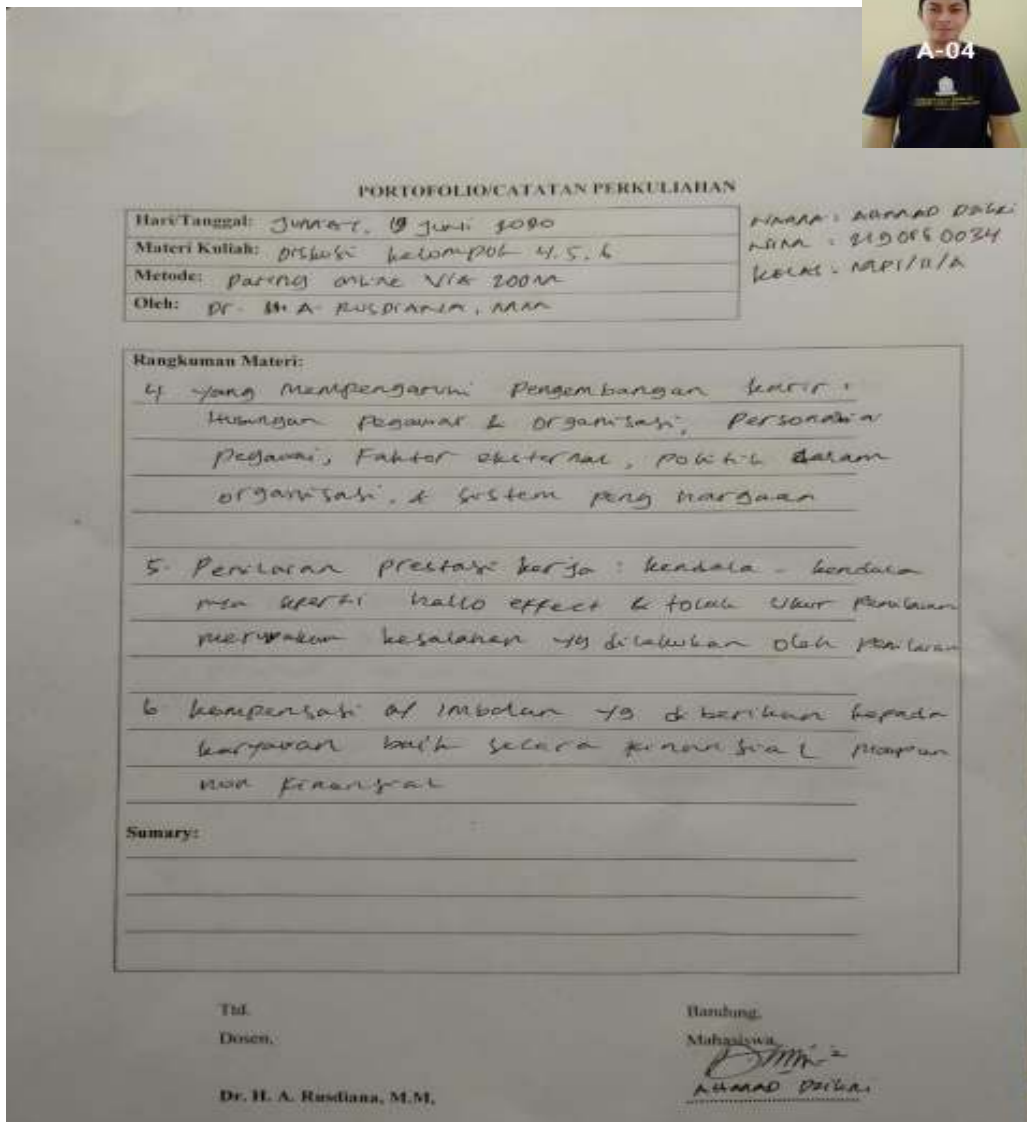 A-04
PORTOFOLIO/CATATAN PERKULIAHAN
Hari/Tanggal: Jumat, 19 Juni 2020
Materi Kuliah: Diskusi kelompok 4.5.6
Metode: Daring online VIA ZOOM
Oleh: Dr. H. A. RUSDIANA, MM
NAMA : AHMAD DZIKRI
NIM : 2190060034
KELAS : MPI/II/A
Rangkuman Materi:
4 yang mempengaruhi Pengembangan karir :
Hubungan pegawai & organisasi, Personalia
pegawai, Faktor eksternal, politik dalam
organisasi, & sistem penghargaan
5. Penilaian prestasi kerja : kendala - kendala
seperti hallo effect & tolak ukur penilaian
merupakan kesalahan yg dilakukan oleh penilaian
6 kompensasi a/ imbalan yg diberikan kepada
karyawan baik secara finansial maupun
non finansial
Sumary:
Ttd.
Dosen,
Dr. H. A. Rusdiana, M.M,
Bandung,
Mahasiswa
AHMAD DZIKRI